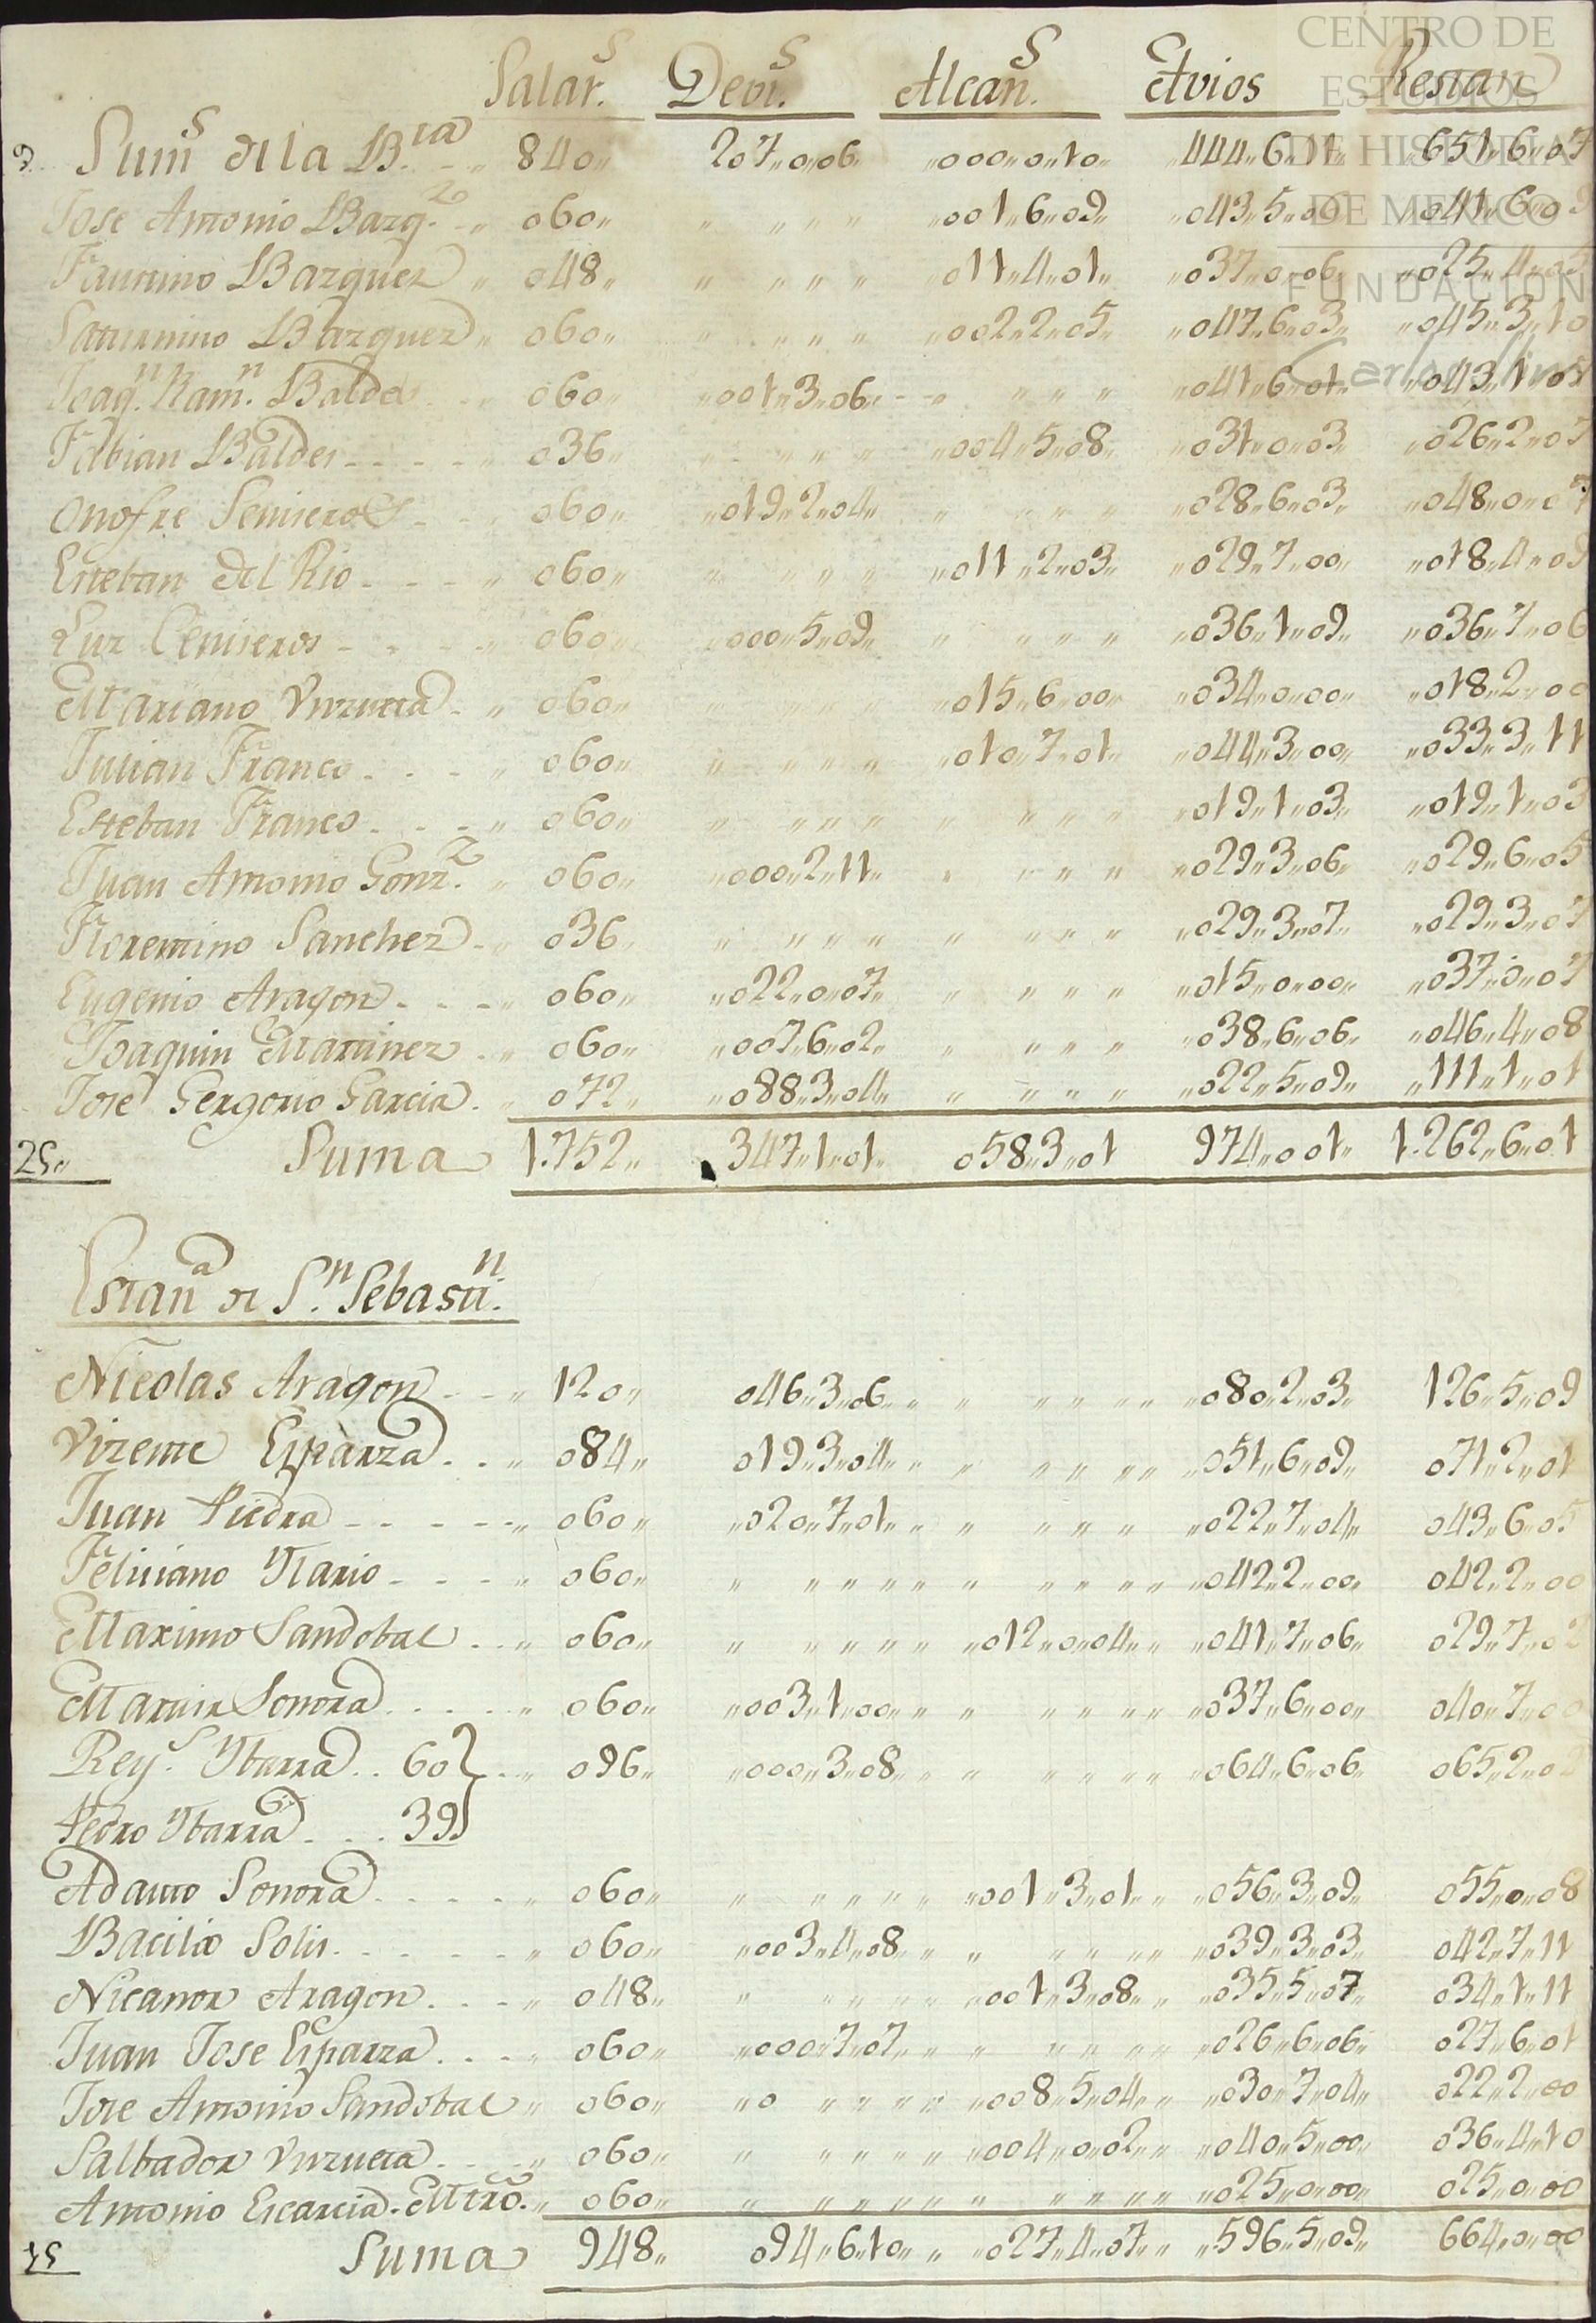 CENTRO DE
ESTUDIOS
DE HISTORIA
DE MEXICO
FUNDACIÓN
Salar.s Devi.s Alcan.s Avios Restan
9.. Sum.s de la B.ta 840,, 207,,0,,06 ,,000,,0,,10,, ,,444,,6,,11,, ,,651,,6,,07
Jose Antonio Bazq.z ,, 060,, ,, ,, ,, ,, ,,001,,6,,09,, ,,043,,5,,06 ,,041,,6,,09
Faustino Bazquez ,, 048,, ,, ,, ,, ,, ,,011,,4,,01,, ,,037,,0,,06,, ,,025,,4,,05
Saturnino Bazquez ,, 060,, ,, ,, ,, ,, ,,002,,2,,05,, ,,047,,6,,03,, ,,045,,3,,10
Joaq.n Ram.n Baldes ,, 060,, ,,001,,3,,06,, ,, ,, ,, ,, ,,041,,6,,01,, ,,043,,1,,07
Fabian Baldes ,, 036,, ,, ,, ,, ,, ,,004,,5,,08,, ,,031,,0,,03,, ,,026,,2,,07
Onofre Seniseros ,, 060,, ,,019,,2,,04,, ,, ,, ,, ,, ,,028,,6,,03,, ,,048,,0,,07
Esteban del Rio ,, 060,, ,, ,, ,, ,, ,,011,,2,,03,, ,,029,,7,,00,, ,,018,,4,,09
Luz Ceniseros ,, 060,, ,,000,,5,,09,, ,, ,, ,, ,, ,,036,,1,,09,, ,,036,,7,,06
Mariano Vnzueta ,, 060,, ,,015,,6,,00,, ,,034,,0,,00,, ,,018,,2,,00
Julian Franco ,, 060,, ,, ,, ,, ,, ,,010,,7,,01,, ,,044,,3,,00,, ,,033,,3,,11
Esteban Franco ,, 060,, ,, ,, ,, ,, ,, ,, ,, ,, ,,019,,1,,03,, ,,019,,1,,03
Juan Antonio Gonz.z ,, 060,, ,,000,,2,,11,, ,, ,, ,, ,, ,,029,,3,,06,, ,,029,,6,,05
Florentino Sanchez ,, 036,, ,, ,, ,, ,, ,, ,, ,, ,, ,,029,,3,,07,, ,,029,,3,,07
Eugenio Aragon ,, 060,, ,,022,,0,,07,, ,, ,, ,, ,, ,,015,,0,,00,, ,,037,,0,,07
Joaquin Martinez ,, 060,, ,,007,,6,,02,, ,, ,, ,, ,, ,,038,,6,,06,, ,,046,,4,,08
José Gergorio Garcia ,, 072,, ,,088,,3,,04,, ,, ,, ,, ,, ,,022,,5,,09,, ,,111,,1,,01
25,, Suma 1.752,, 347,,1,,01,, 058,,3,,01 974,,0,,01,, 1.262,,6,,01
Estan.a de S.n Sebasti.n
Nicolas Aragon ,, 120,, 046,,3,,06,, ,, ,, ,, ,, ,, ,,080,,2,,03,, 126,,5,,09
Vizente Esparza ,, 084,, 019,,3,,04,, ,, ,, ,, ,, ,, ,,051,,6,,09,, 071,,2,,01
Juan Piedra ,, 060,, ,,020,,7,,01,, ,, ,, ,, ,, ,, ,,022,,7,,04,, 043,,6,,05
Feliciano Ylario ,, 060,, ,, ,, ,, ,, ,, ,, ,, ,, ,, ,, ,,042,,2,,00,, 042,,2,,00
Maximo Sandobal ,, 060,, ,, ,, ,, ,, ,, ,,012,,0,,04,, ,, ,,041,,7,,06,, 029,,7,,02
Martin Sonora ,, 060,, ,,003,,1,,00,, ,, ,, ,, ,, ,, ,,037,,6,,00,, 040,,7,,00
Rey.s Ybarra 60 ,, 096,, ,,000,,3,,08,, ,, ,, ,, ,, ,, ,,064,,6,,06,, 065,,2,,02
Pedro Ybarra 39
Adauto Sonora ,, 060,, ,, ,, ,, ,, ,, ,,001,,3,,01,, ,, ,,056,,3,,09,, 055,,0,,08
Bacilio Solis ,, 060,, ,,003,,4,,08,, ,, ,, ,, ,, ,, ,,039,,3,,03,, 042,,7,,11
Nicanor Aragon ,, 048,, ,, ,, ,, ,, ,, ,,001,,3,,08,, ,, ,,035,,5,,07,, 034,,1,,11
Juan Jose Esparza ,, 060,, ,,000,,7,,07,, ,, ,, ,, ,, ,, ,,026,,6,,06,, 027,,6,,01
Jose Antonio Sandobal ,, 060,, ,,0 ,, ,, ,, ,, ,,008,,5,,04,, ,, ,,030,,7,,04,, 022,,2,,00
Salbador Vnzueta ,, 060,, ,, ,, ,, ,, ,, ,,004,,0,,02,, ,, ,,040,,5,,00,, 036,,4,,10
Antonio Escarcia. Mtro. ,, 060,, ,, ,, ,, ,, ,, ,, ,, ,, ,, ,, ,,025,,0,,00,, 025,,0,,00
15 Suma 948,, 094,,6,,10,, ,, ,,027,,4,,07,, ,, ,,596,,5,,09,, 664,,0,,00